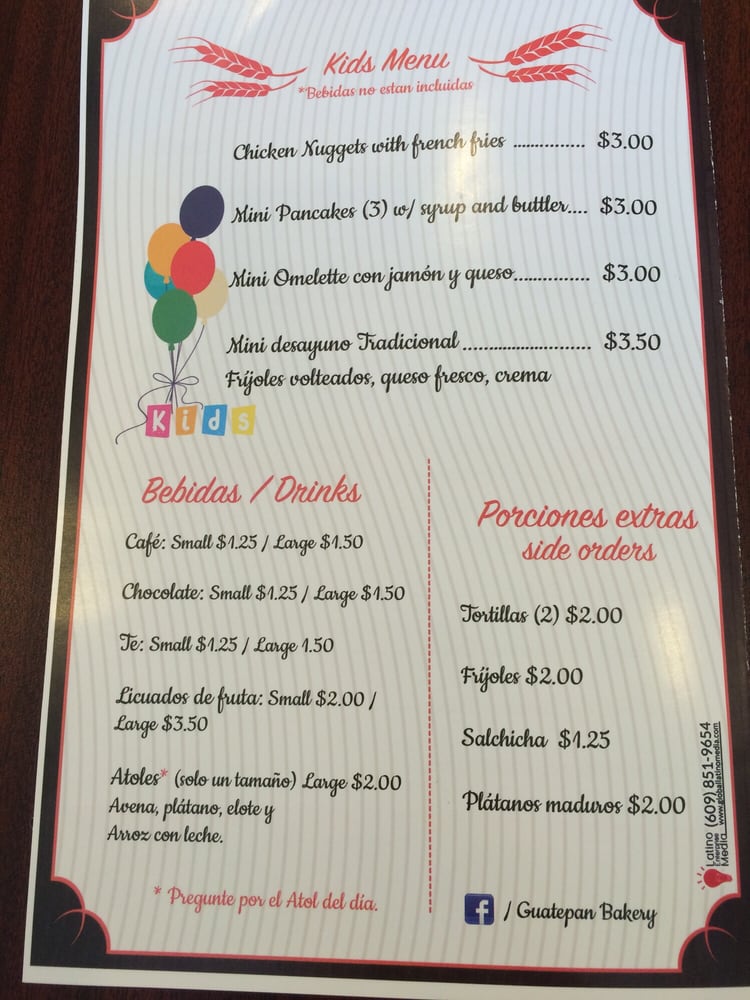 Kids Menu
*Bebidas no estan incluidas
Chicken Nuggets with french fries ............... $3.00
Mini Pancakes (3) w/ syrup and buttler.... $3.00
Mini Omelette con jamón y queso............... $3.00
Mini desayuno Tradicional ......................... $3.50
Frijoles volteados, queso fresco, crema
Kids
Bebidas / Drinks
Café: Small $1.25 / Large $1.50
Chocolate: Small $1.25 / Large $1.50
Te: Small $1.25 / Large 1.50
Licuados de fruta: Small $2.00 /
Large $3.50
Atoles* (solo un tamaño) Large $2.00
Avena, plátano, elote y
Arroz con leche.
* Pregunte por el Atol del día.
Porciones extras
side orders
Tortillas (2) $2.00
Frijoles $2.00
Salchicha $1.25
Plátanos maduros $2.00
/ Guatepan Bakery
Latino
Enterprises
Media
(609) 851-9654
www.globallatinomedia.com